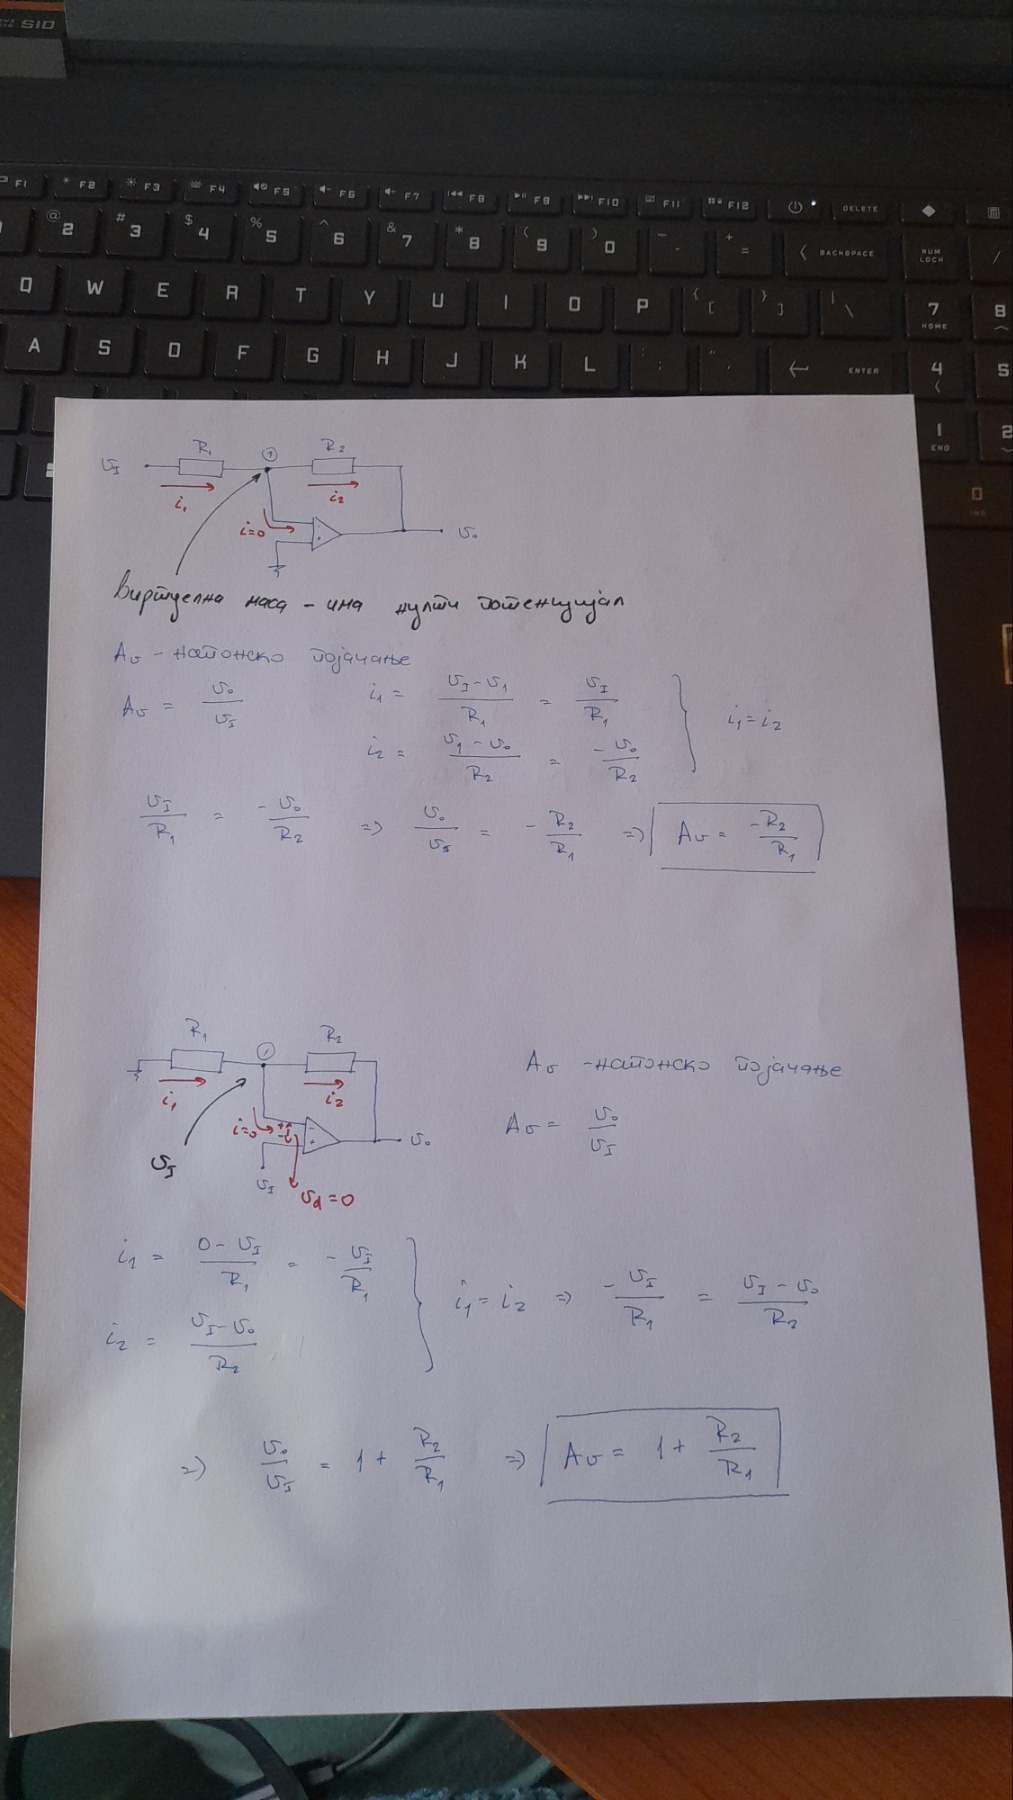 SIO
F1 F2 F3 F4 F5 F6 F7 F8 F9 F10 F11 F12 DELETE
@ 2 # 3 $ 4 % 5 ^ 6 & 7 * 8 ( 9 ) 0 _ - + = BACKSPACE NUM LOCK /
Q W E R T Y U I O P { [ } ] | \ 7 HOME 8
A S D F G H J K L : ; " ' ENTER 4 5
1 END 2
0 INS
R₁ ① R₂
υ_I
i₁ i₂
i=0
υ₀
Виртуелна маса - има нулти потенцијал
Aυ - напонско појачање
Aυ = υ₀/υ_I i₁ = (υ_I - υ₁)/R₁ = υ_I/R₁
i₂ = (υ₁ - υ₀)/R₂ = -υ₀/R₂ } i₁ = i₂
υ_I/R₁ = -υ₀/R₂ => υ₀/υ_I = -R₂/R₁ => Aυ = -R₂/R₁
R₁ ① R₂
i₁ i₂
i=0 + -
υ₀
υ_I
υ_I
υ_d = 0
Aυ - напонско појачање
Aυ = υ₀/υ_I
i₁ = (0 - υ_I)/R₁ = -υ_I/R₁
i₂ = (υ_I - υ₀)/R₂ } i₁ = i₂ => -υ_I/R₁ = (υ_I - υ₀)/R₂
=> υ₀/υ_I = 1 + R₂/R₁ => Aυ = 1 + R₂/R₁